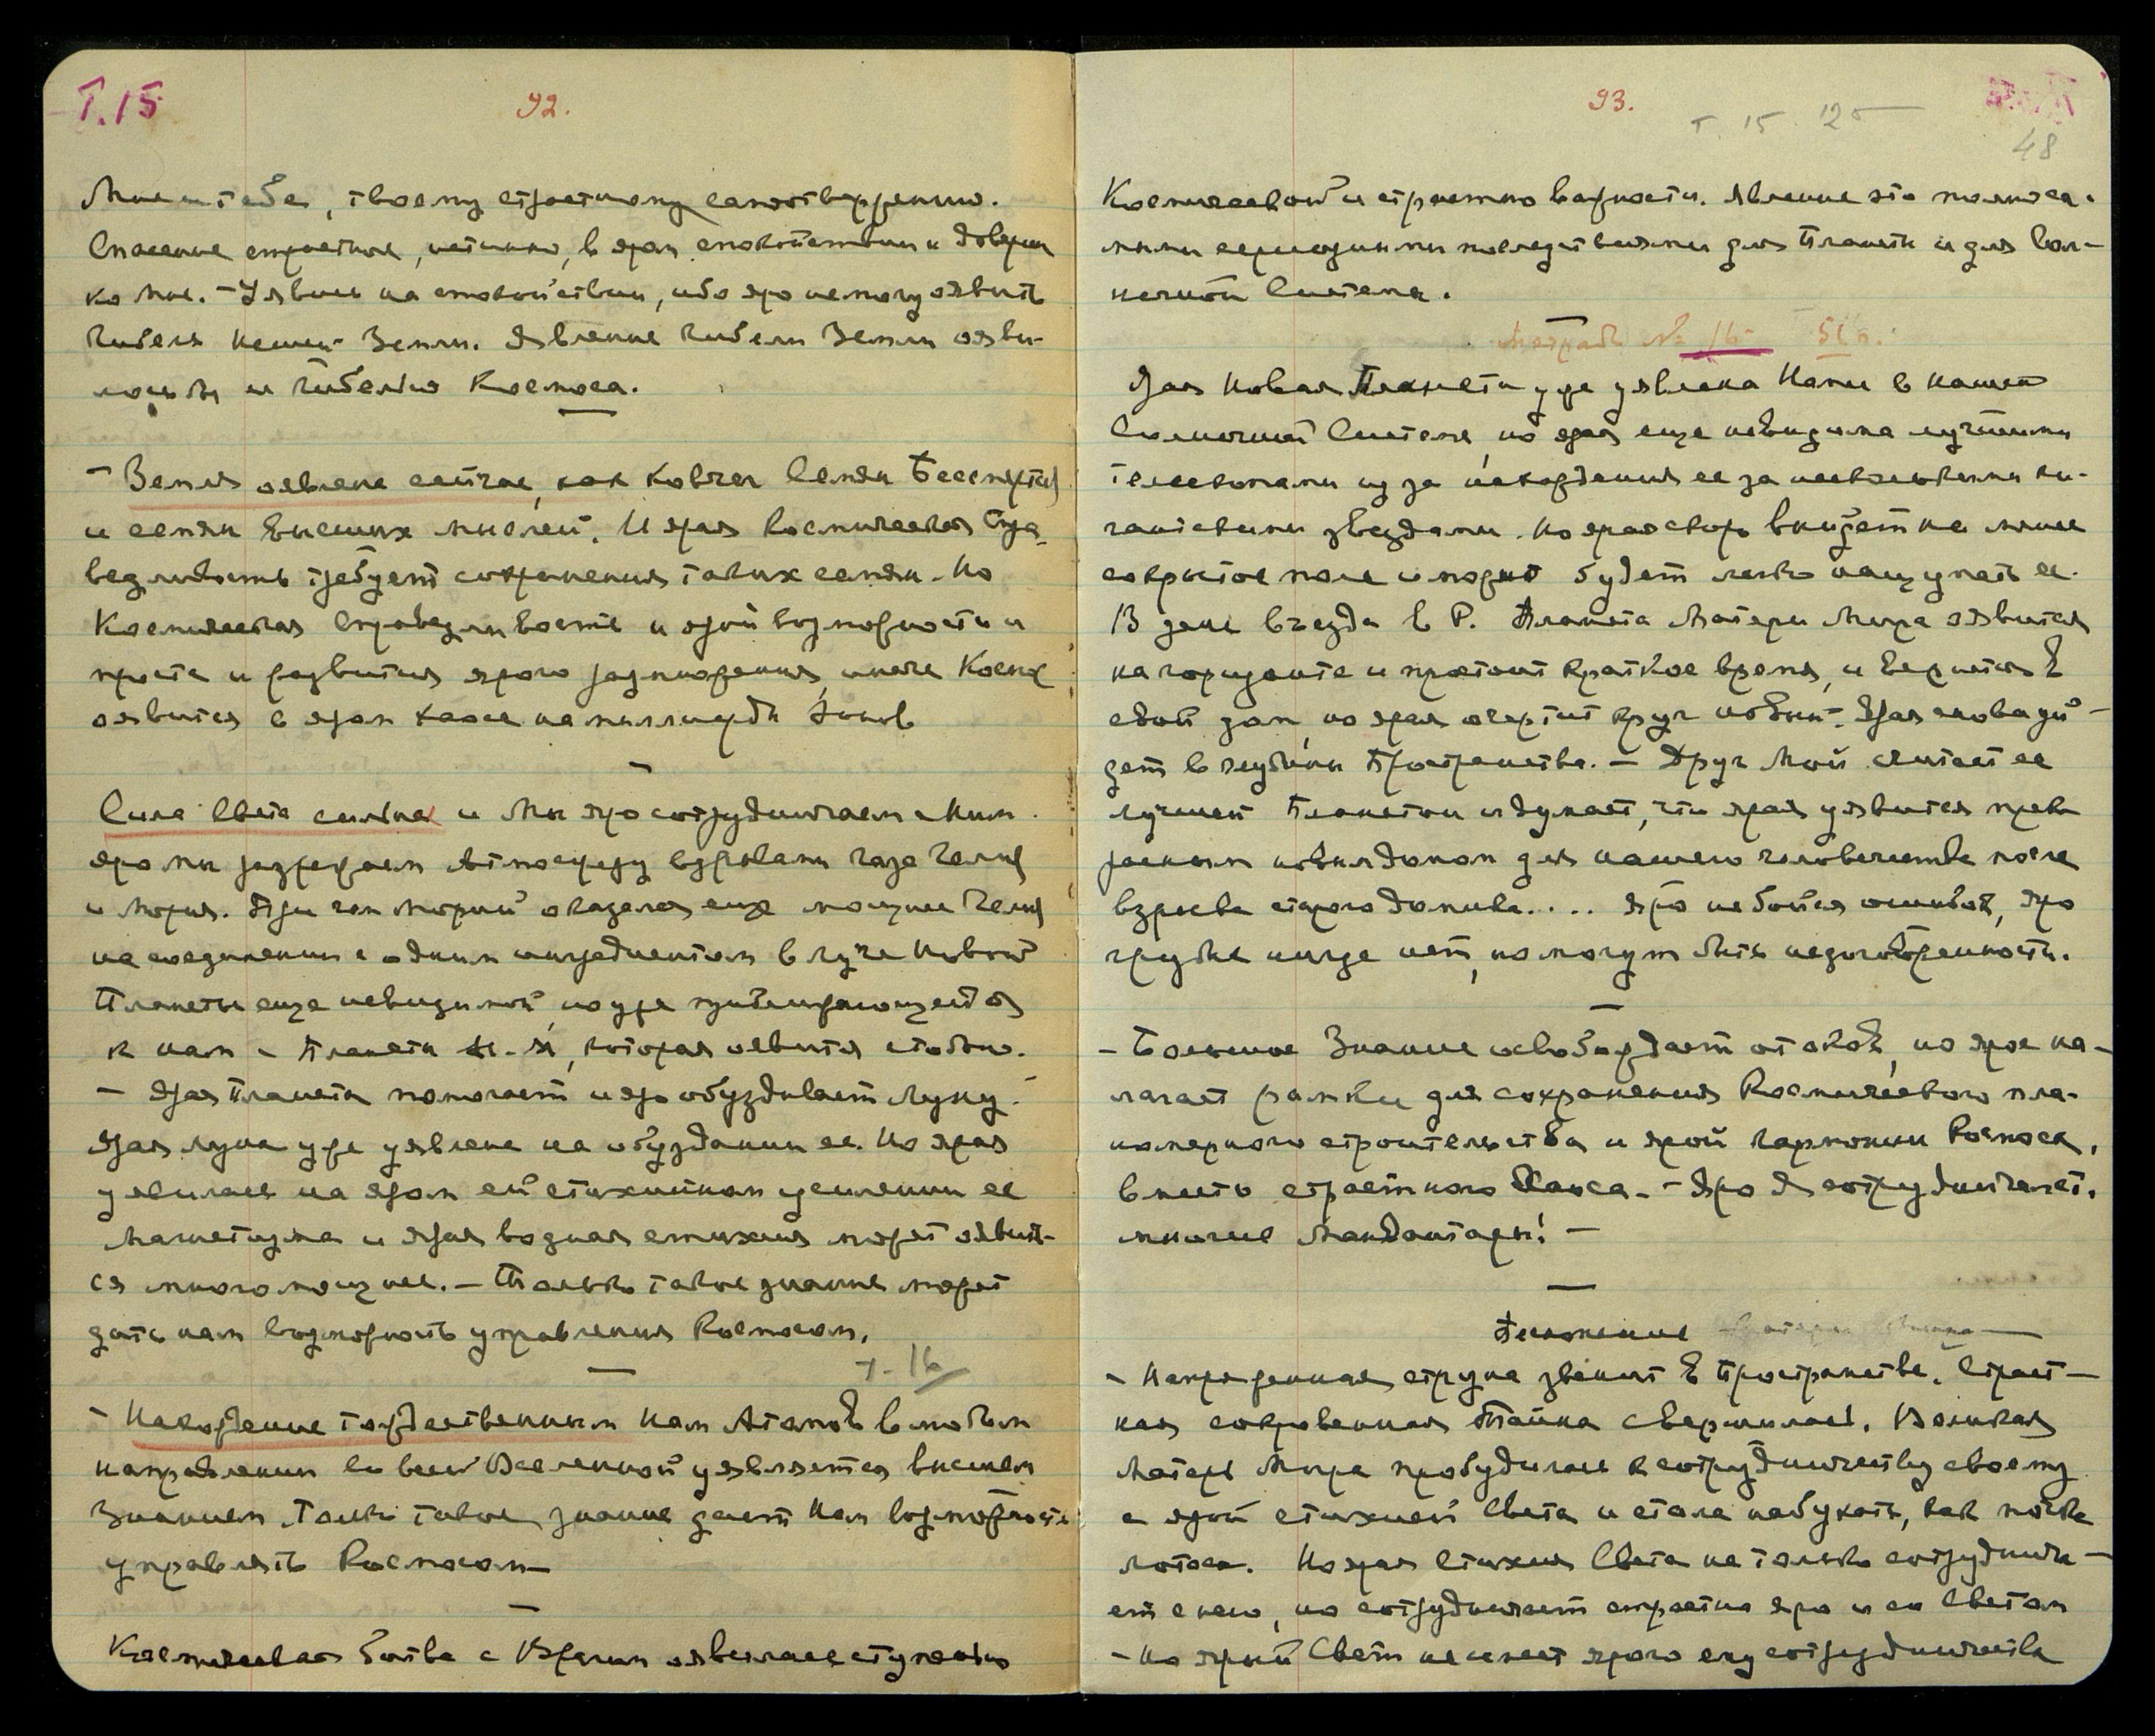 Т.15
92.
Мне и тебе, твоему страстному самоотвержению.
Спасение страстное, истинно, в яром спокойствии и доверии
ко Мне. – Уявись на спокойствии, ибо яро не могу оявить
гибель нашей Земли. Явление гибели Земли ояви-
лось бы и гибелью Космоса.
– Земля оявлена сейчас, как ковчег Семян Бессмертия
и семян Высших мыслей. И ярая Космическая Спра-
ведливость требует сохранения таких семян. Но
Космическая Справедливость и ярой возможности и
роста и развития ярого размножения, иначе Космос
оявится в яром хаосе на миллиарды Эонов
Сила Света сильна и Мы яро сотрудничаем с Ним.
Яро мы разрежаем Атмосферу взрывами газа Гелия
и Мория. При чем Морий оказался еще мощнее Гелия
на соединении с одним ингредиентом в луче Новой
Планеты еще невидимой, но уже приближающейся
к нам – Планеты М.М, которая явится с тобою.
– Ярая Планета помогает и яро обуздывает Луну.
Ярая луна уже уявлена на обуздании ее. Но ярая
уявилась на яром ей стихийном усилении ее
Магнетизма и ярая водная стихия может оявить-
ся много мощнее. – Только такое знание может
дать нам возможность управления Космосом.
Т. 16
– Нахождение тождественных Нам Атомов в любом
направлении во всей Вселенной уявляется высшим
Знанием. Только такое знание дает Нам возможность
управлять Космосом –
Космическая битва с Врагом оявилась ступенью
93.
Т. 15. 125
48
Космической и страстно важности. Явление это
последствиями для Планеты и для Сол-
нечной Системы.
Тетрадь № 16 51 г.
Ярая Новая Планета уже уявлена Нами в нашей
Солнечной Системе, но ярая еще невидима лучшими
телескопами из за нахождения ее за несколькими ги-
гантскими звездами. Но ярая скоро выйдет на менее
сокрытое поле и можно будет легко нащупать ее.
В день въезда в Р. Планета Матери Мира оявится
на горизонте и простоит краткое время, и вернется в
свой дом, но ярая очертит круг новый. Ярая снова уй-
дет в глубины Пространства. – Друг Мой считает ее
лучшей Планетой и думает, что ярая уявится прек-
расным новым домом для нашего человечества после
взрыва старого домика.... Яро не бойся ошибок, яро
грубых нигде нет, но могут быть недоговоренности.
– Большое Знание освобождает от оков, но ярое на-
лагает рамки для сохранения Космического пла-
номерного строительства и ярой гармонии Космоса,
вместо страстного Хаоса. – Яро Я
– Напряженная струна звенит в Пространстве. Страст-
ная сокровенная Тайна свершилась. Великая
Матерь Мира пробудилась к сотрудничеству своему
с ярой стихией Света и стала набухать, как почка
лотоса. Но ярая Стихия Света не только сотруднича-
ет с нею, но сотрудничает страстно яро и со Светом
– Но ярый Свет не имеет ярого ему сотрудничества